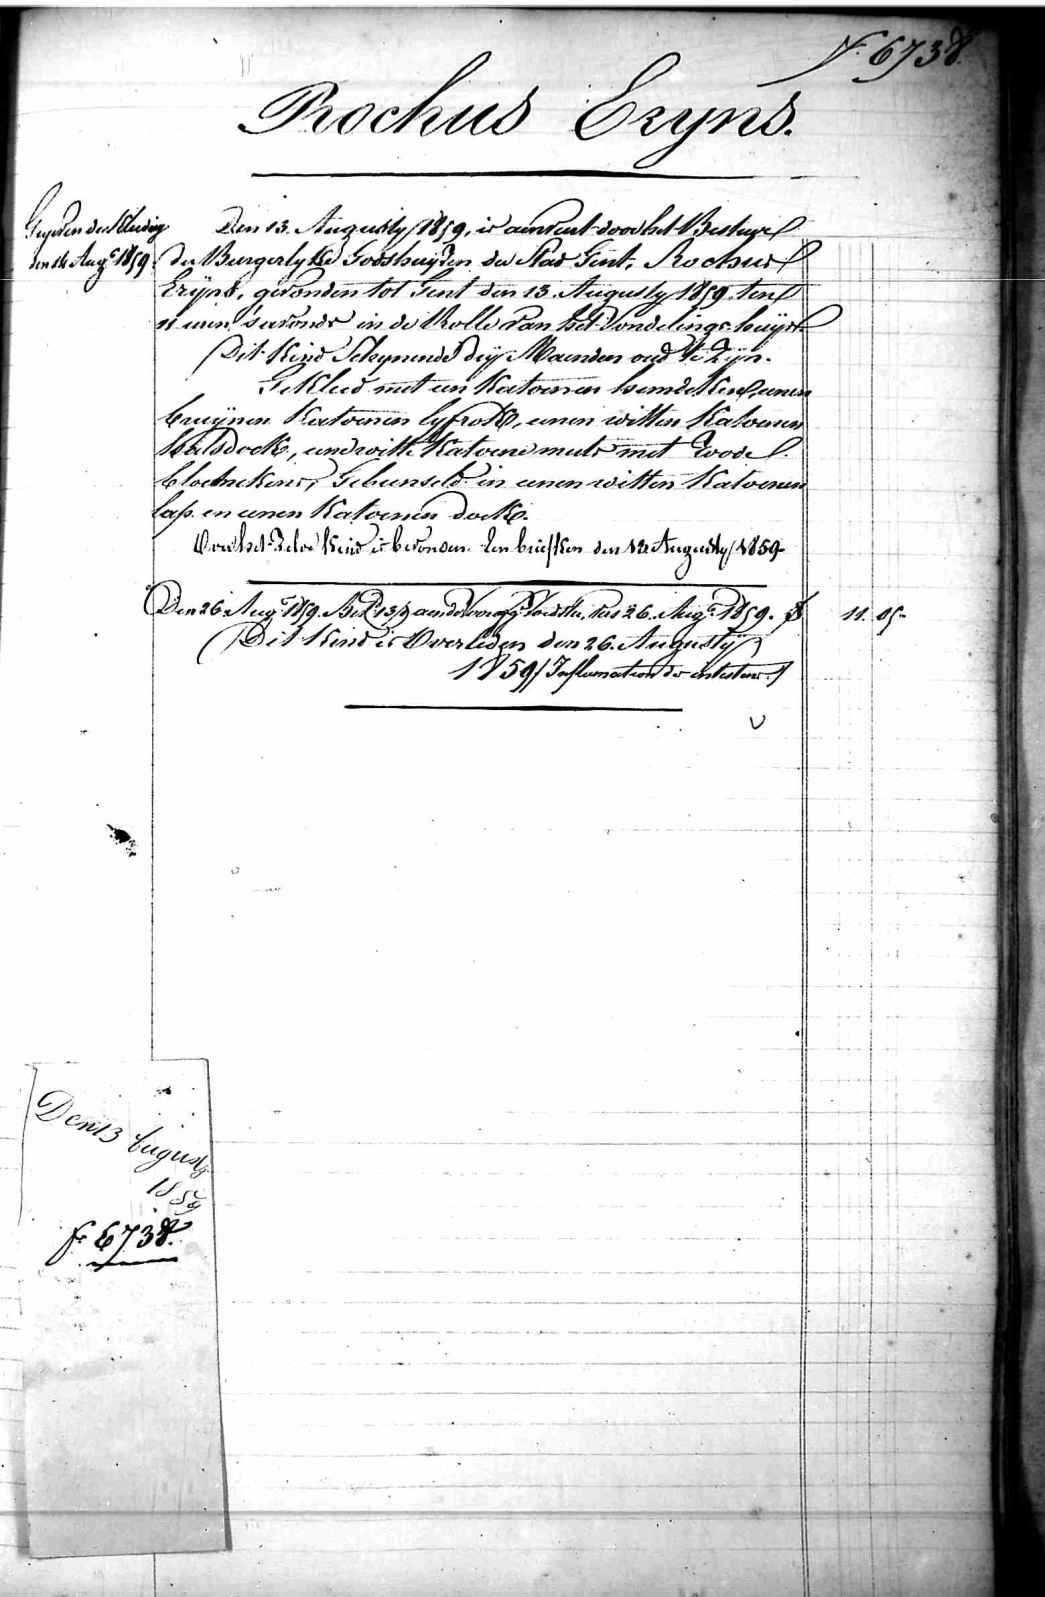 F. 6738.
Rochus Eryns.
Gegeven der Kleeding
den 14 Aug.t 1859
Den 13. Augusty 1859, is aenveert door het Bestuer
der Burgerlyke Godshuyzen der Stad Gent, Rochus
Eryns, gevonden tot Gent den 13. Augusty 1859 ten
11 uren 's avonds in de Rolle van het Vondelings-huys.
Dit Kind Schynende dry Maenden oud te zyn.
Gekleed met een Katoenen hemdeken, eenen
bruynen Katoenen lyfrok, eenen witten Katoenen
halsdoek, eene witte Katoene muts met roode
bloemekens, Gebunseld in eenen witten Katoenen
lap en eenen Katoenen doek.
Over het Zelve Kind is bevonden een briefken den 12 Augusty 1859
Den 26. Aug.t 1859. aen de Voedster, tot 26. Aug.t 1859. 11. 05
Dit Kind is Overleden den 26. Augusty
1859 (Inflamation des intestins.)
Den 13
Augusty
1859
F. 6738.